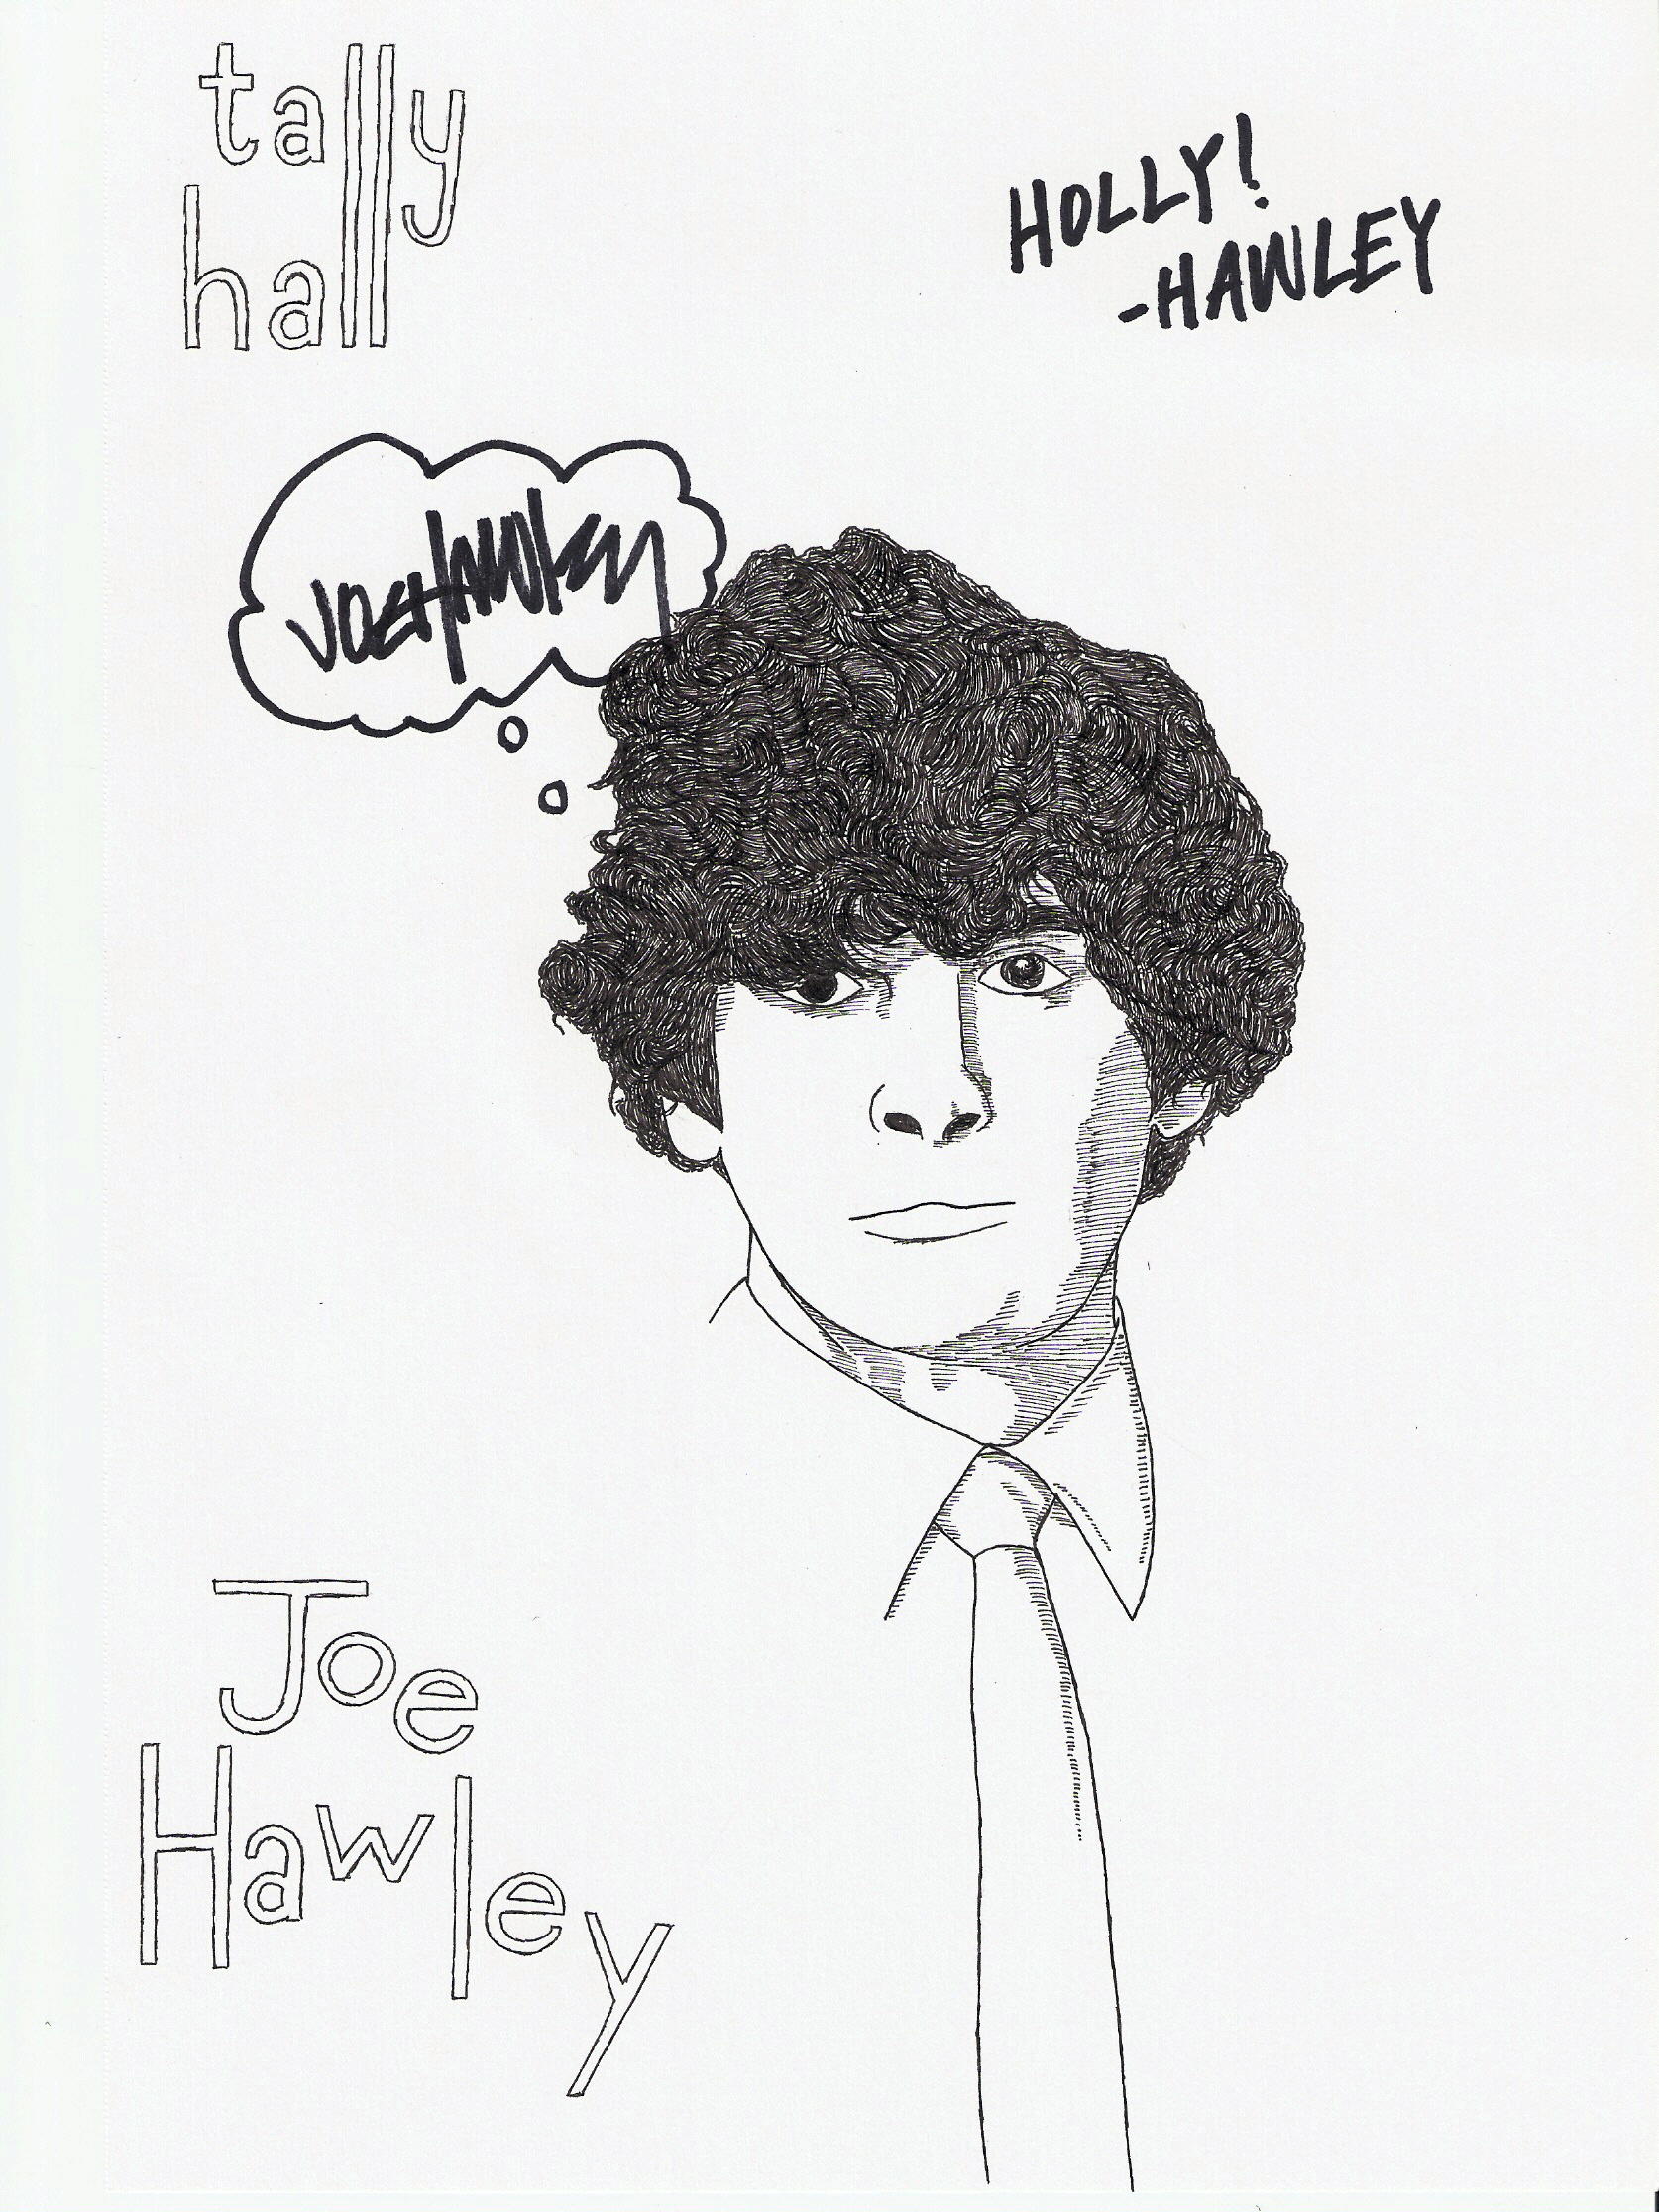 tally
hall
HOLLY!
-HAWLEY
JOEHAWLEY
Joe
Hawley